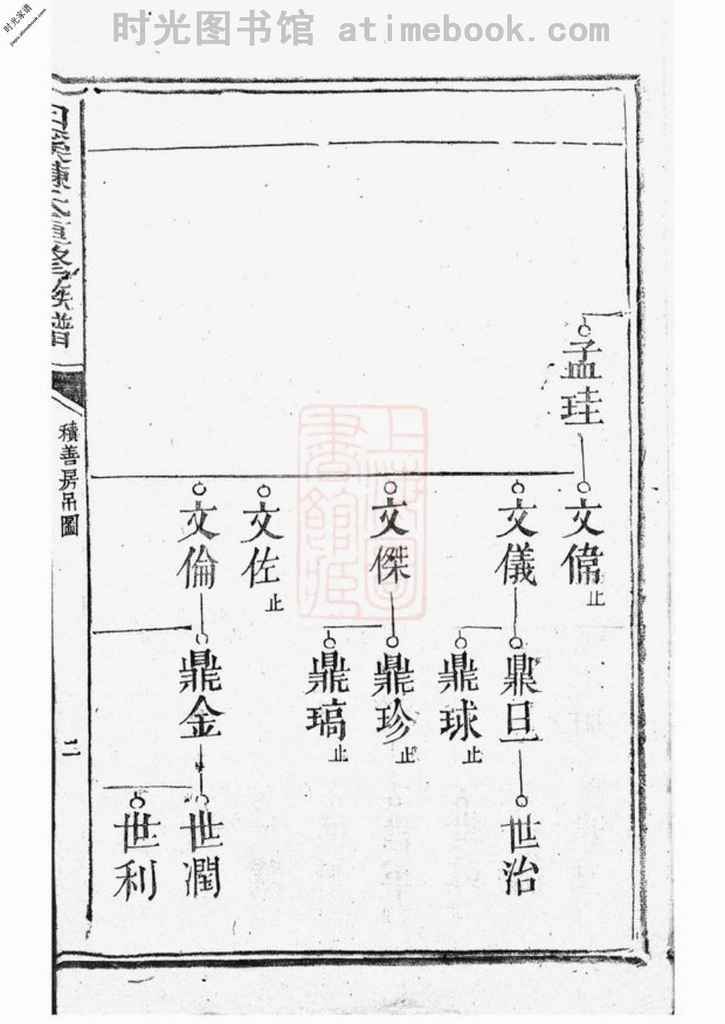 时光家谱
时光图书馆 atimebook.com
孟珪
文偉止
文儀
鼎旦
世治
鼎球止
文傑
鼎珍止
鼎㻏止
文佐止
文倫
鼎金
世潤
世利
陳氏重修族譜
積善房吊圖
二